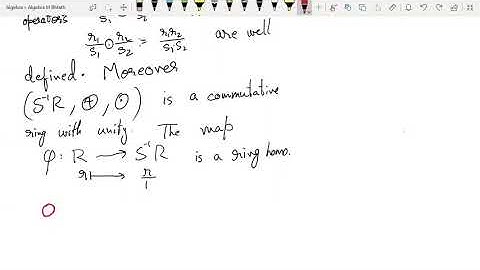 operators
r₁/s₁ ⊙ r₂/s₂ = r₁r₂/s₁s₂ are well
defined. Moreover
(S⁻¹R, ⊕, ⊙) is a commutative
ring with unity. The map
φ: R → S⁻¹R is a ring homo.
r ↦ r/1